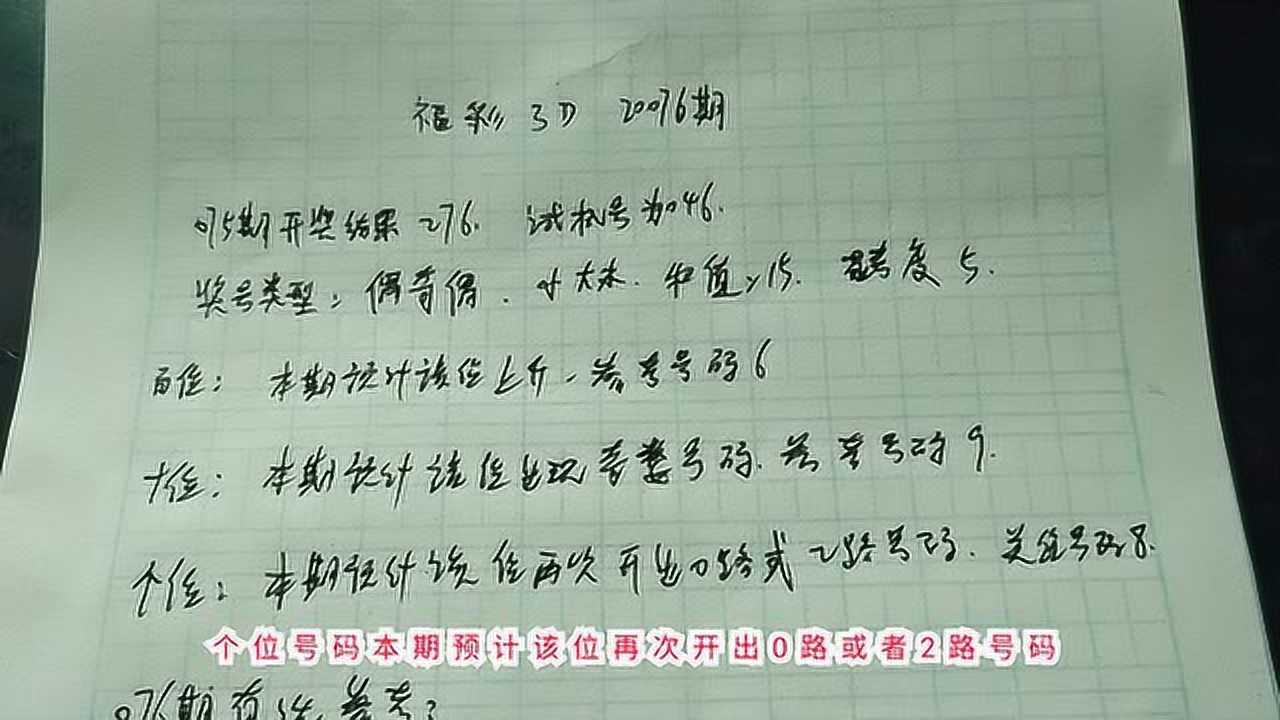 福彩3D 20076期
075期开奖结果276. 试机号为046.
奖号类型: 偶奇偶. 小大大. 和值15. 跨度5.
百位: 本期预计该位上升. 参考号码6
十位: 本期预计该位出现奇数号码. 参考号码9.
个位: 本期预计该位再次开出0路或2路号码. 关注号码8.
个位号码本期预计该位再次开出0路或者2路号码
076期 参考: